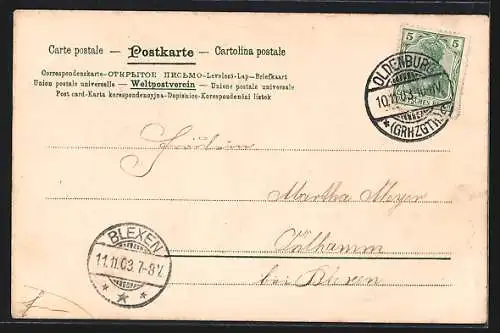 Carte postale — Postkarte — Cartolina postale
Correspondenzkarte-ОТКРЫТОЕ ПИСЬМО-Levelező-Lap-Briefkaart
Union postale universelle — Weltpostverein — Unione postale universale
Post card-Karta korespondencyjna-Dopisnice-Korespondenční lístek
5 5
OLDENBURG
10.11.03
*(GRHZGTH.)
Fräulein
Martha Meyer
Volhamm
bei Blexen
BLEXEN
11.11.03. 7-8V.
* * *